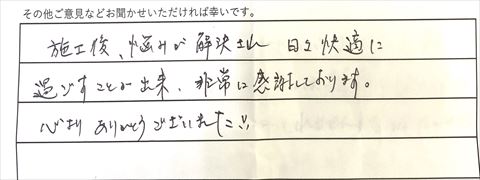 その他ご意見などお聞かせいただければ幸いです。
施工後、悩みが解決され 日々快適に
過ごすことが出来、非常に感謝しております。
心より ありがとうございました!!